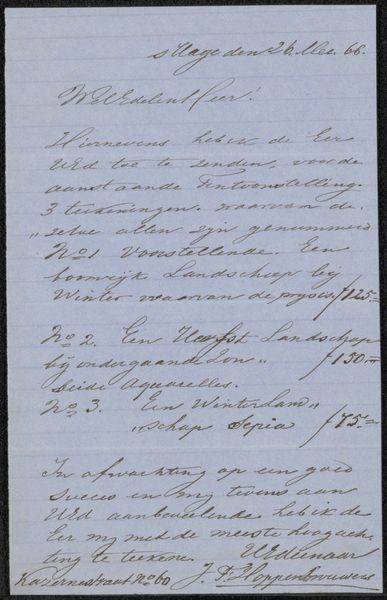 s Hage den 26 Mei. 66.
WelEdelen Heer!
Hiernevens heb ik de Eer
UEd toe te zenden, voor de
aanstaande Tentoonstelling.
3 teekeningen. waarvan de.
„zelve allen zijn genummerd
No 1 Voorstellende. Een
boomrijk Landschap bij
Winter waarvan de prys is. f 125=
No 2. Een Herfst Landschap
bij ondergaande Zon „ f 150=
beide Aquarelles.
No 3. Een Winterland „
„schap Sepia f 75.=
In afwachting op een goed
succes en mij tevens aan
UEd aanbevelende heb ik de
Eer mij met de meeste hoogach„
ting te teekenen. UEdienaar
Kazernestraat No 60 J. F. Hoppenbrouwers